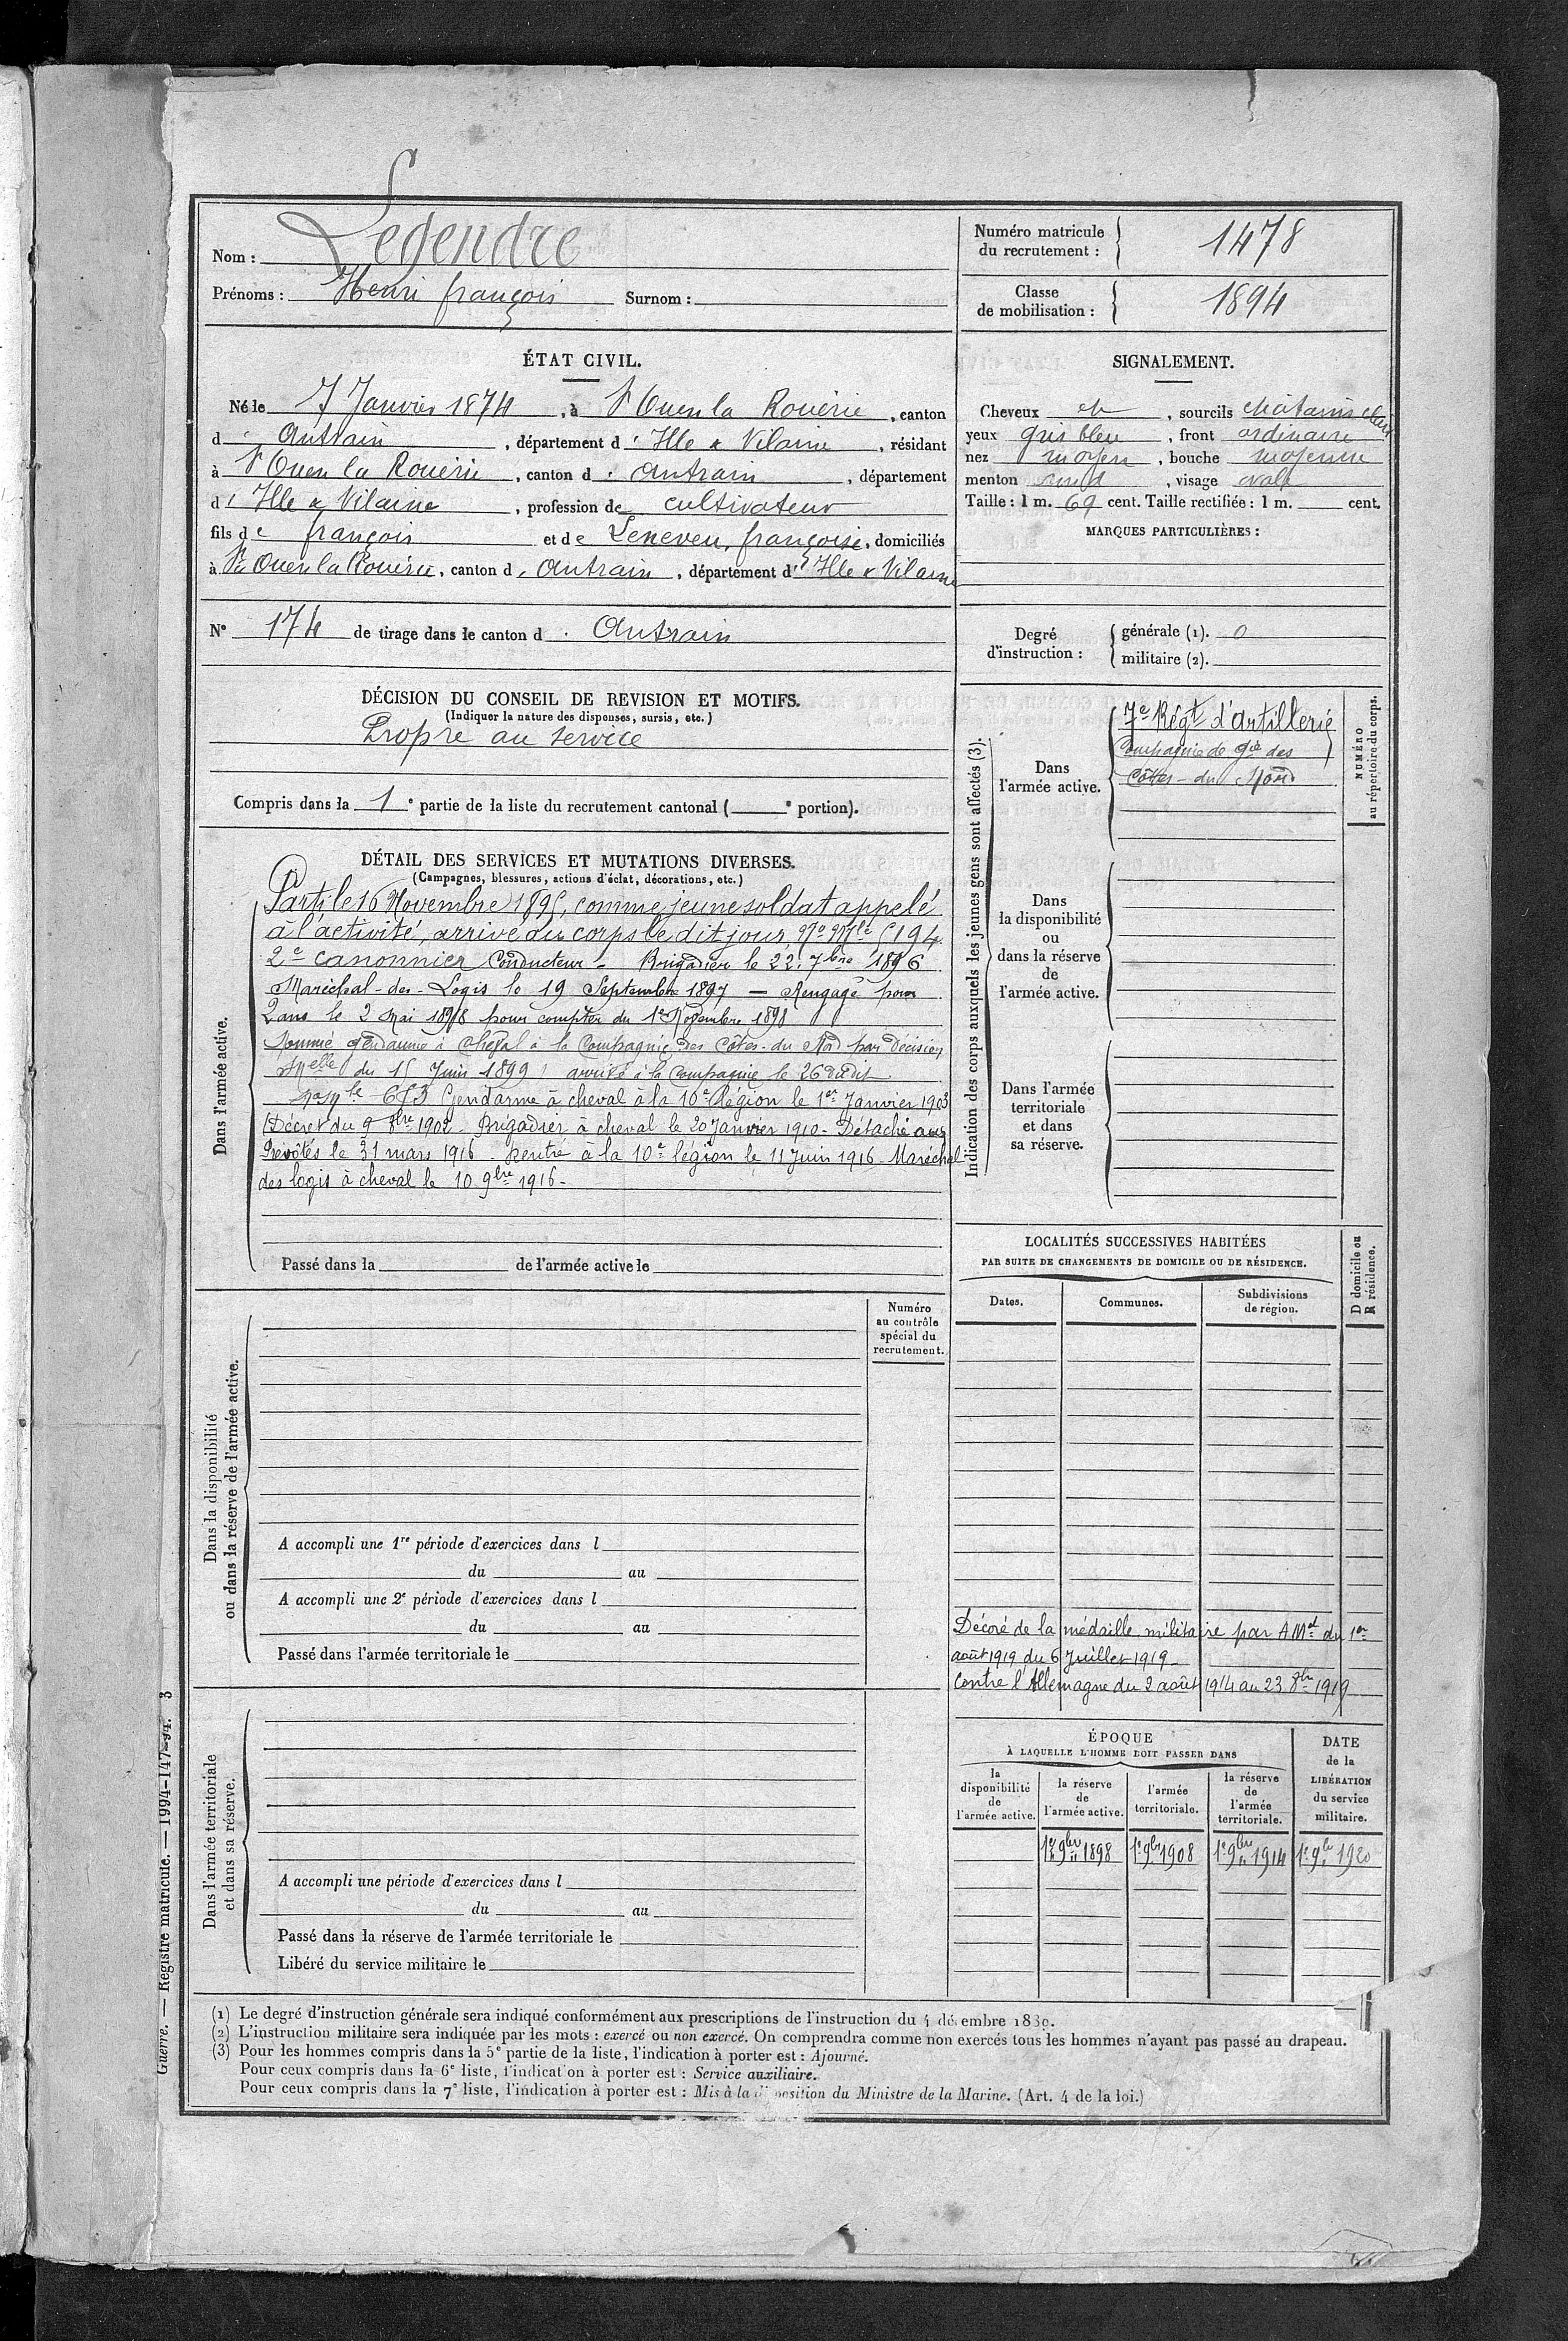 Nom : Legendre
Prénoms : Henri françois Surnom :
Numéro matricule
du recrutement : 1478
Classe
de mobilisation : 1894
ÉTAT CIVIL.
Né le 7 Janvier 1874, à St Ouen la Rouërie, canton
d'Antrain, département d'Ille & Vilaine, résidant
à St Ouen la Rouërie, canton d'Antrain, département
d'Ille & Vilaine, profession de cultivateur
fils de françois et de Leneveu, françoise, domiciliés
à St Ouen la Rouërie, canton d'Antrain, département d'Ille & Vilaine
N° 174 de tirage dans le canton d'Antrain
SIGNALEMENT.
Cheveux et, sourcils chatains clair
yeux gris bleu, front ordinaire
nez moyen, bouche moyenne
menton rond, visage ovale
Taille : 1 m. 69 cent. Taille rectifiée : 1 m. cent.
MARQUES PARTICULIÈRES :
Degré
d'instruction :
générale (1). 0
militaire (2).
DÉCISION DU CONSEIL DE REVISION ET MOTIFS.
(Indiquer la nature des dispenses, sursis, etc.)
Propre au service
Compris dans la 1e partie de la liste du recrutement cantonal ( e portion).
DÉTAIL DES SERVICES ET MUTATIONS DIVERSES.
(Campagnes, blessures, actions d'éclat, décorations, etc.)
Dans l'armée active.
Parti le 16 Novembre 1895, comme jeune soldat appelé
à l'activité, arrivé au corps le dit jour, No Mle 5194
2e canonnier Conducteur - Brigadier le 22 7bre 1896
Maréchal-des-Logis le 19 Septembre 1897 — Rengagé pour
2 ans le 2 Mai 1898 pour compter du 1er Novembre 1898
Nommé gendarme à cheval à la Compagnie des Côtes-du-Nord par Décision
Melle du 15 Juin 1899 arrivé à la Compagnie le 26 dudit
No Mle 653 Gendarme à cheval à la 10e Légion le 1er Janvier 1903
(Décret du 9 8bre 1902 - Brigadier à cheval le 20 Janvier 1910 - Détaché aux
Prévôtés le 31 mars 1916 - Rentré à la 10e légion le 11 Juin 1916 - Maréchal
des logis à cheval le 10 9bre 1916 -
Passé dans la de l'armée active le
Indication des corps auxquels les jeunes gens sont affectés (3).
NUMÉRO
au répertoire du corps.
Dans
l'armée active.
7e Régt d'Artillerie
Compagnie de gie des
Côtes-du-Nord
Dans
la disponibilité
ou
dans la réserve
de
l'armée active.
Dans l'armée
territoriale
et dans
sa réserve.
LOCALITÉS SUCCESSIVES HABITÉES
PAR SUITE DE CHANGEMENTS DE DOMICILE OU DE RÉSIDENCE.
Dates. Communes. Subdivisions
de région.
D domicile ou
R résidence.
Décoré de la médaille militaire par A.Mel du 1er
août 1919 du 6 Juillet 1919
Contre l'Allemagne du 2 août 1914 au 23 8bre 1919
Dans la disponibilité
ou dans la réserve de l'armée active.
Numéro
au contrôle
spécial du
recrutement.
A accompli une 1re période d'exercices dans l
du au
A accompli une 2e période d'exercices dans l
du au
Passé dans l'armée territoriale le
Dans l'armée territoriale
et dans sa réserve.
A accompli une période d'exercices dans l
du au
Passé dans la réserve de l'armée territoriale le
Libéré du service militaire le
ÉPOQUE
À LAQUELLE L'HOMME DOIT PASSER DANS
la
disponibilité
de
l'armée active.
la réserve
de
l'armée active.
l'armée
territoriale.
la réserve
de
l'armée
territoriale.
DATE
de la
LIBÉRATION
du service
militaire.
1er 9bre 1898 1er 9bre 1908 1er 9bre 1914 1er 9bre 1920
(1) Le degré d'instruction générale sera indiqué conformément aux prescriptions de l'instruction du 4 décembre 1889.
(2) L'instruction militaire sera indiquée par les mots : exercé ou non exercé. On comprendra comme non exercés tous les hommes n'ayant pas passé au drapeau.
(3) Pour les hommes compris dans la 5e partie de la liste, l'indication à porter est : Ajourné.
Pour ceux compris dans la 6e liste, l'indication à porter est : Service auxiliaire.
Pour ceux compris dans la 7e liste, l'indication à porter est : Mis à la disposition du Ministre de la Marine. (Art. 4 de la loi.)
Guerre. — Registre matricule. — 1994-147-94. 3